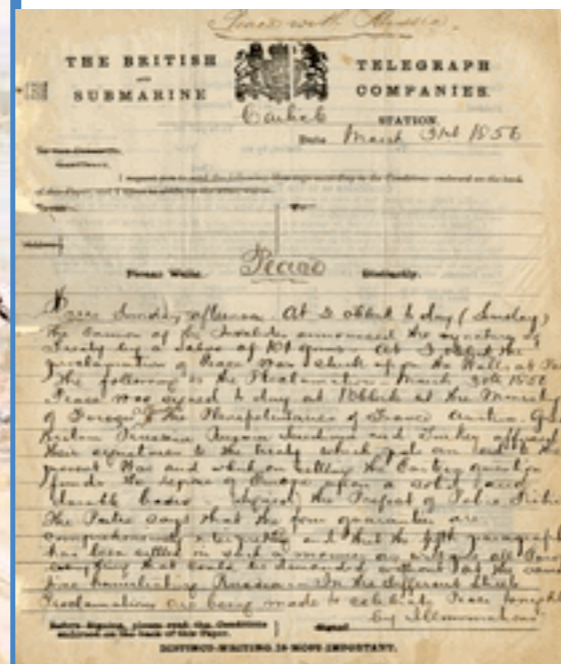 Peace with Russia.
THE BRITISH
AND
SUBMARINE
TELEGRAPH
COMPANIES.
STATION.
Date March 31st 1856
Gentlemen,
I request you to send the following Message according to the Conditions endorsed on the back
of this Paper, and
To
Please Write
Peace
Distinctly.
Paris Sunday afternoon. At 2 oClock to day (Sunday)
the cannon of the Invalides announced the signature of
Treaty by a salvo of 101 guns. At 3 oClock the
proclamation of Peace was stuck up on the Walls of
The following is the Proclamation - March 30th 1856
Peace was signed to day at 1 oClock at the Ministry
of Foreign the Plenipotentiaries of France Austria
Britain Prussia Sardinia and Turkey affixed
their signatures to the treaty which puts an end to the
present War and which in settling the Eastern question
founds the repose of Europe upon a solid and
durable basis signed the Prefect of Police
The says that the four guarantees are
and that the fifth paragraph
has been settled in such a manner as will give all
everything that could be demanded without at the same
time humiliating Russia - In the different streets
Proclamations are being made to celebrate Peace tonight
by Illuminations
Before Signing, please read the Conditions
endorsed on the back of this Paper.
Signed
DISTINCT WRITING IS MOST IMPORTANT.